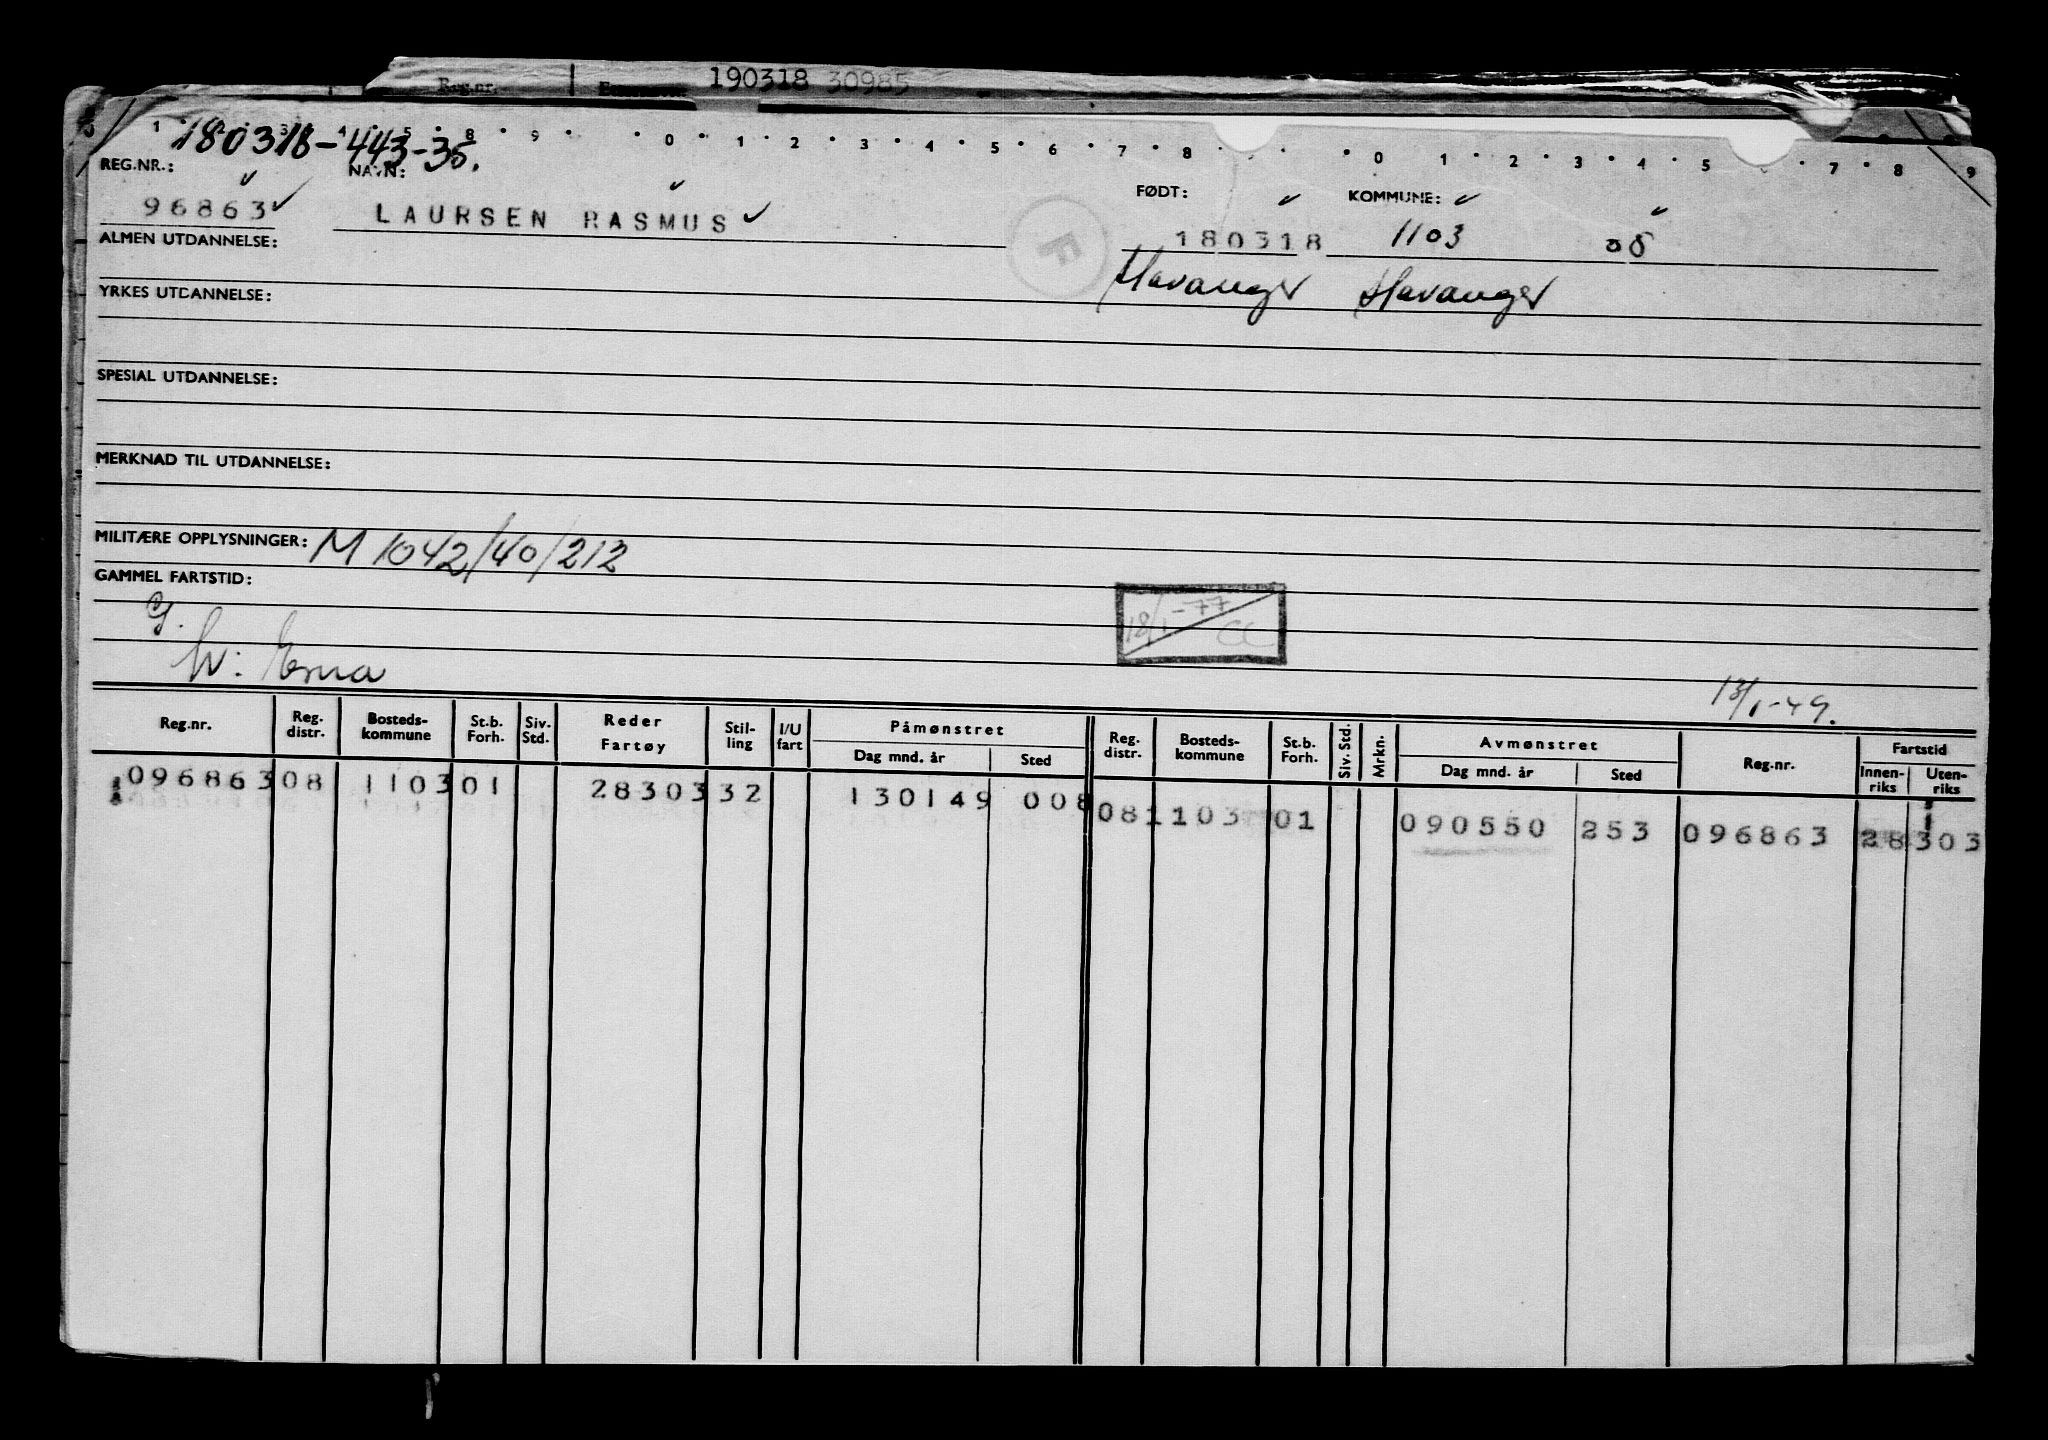 Reg.nr. 190318 30985
1 3 4 5 8 9 0 1 2 3 4 5 6 7 8 0 1 2 3 4 5 7 8 9
180318-443-35.
REG.NR.: NAVN: FØDT: KOMMUNE:
96863 LAURSEN RASMUS F 180318 1103 08
ALMEN UTDANNELSE: Stavanger Stavanger
YRKES UTDANNELSE:
SPESIAL UTDANNELSE:
MERKNAD TIL UTDANNELSE:
MILITÆRE OPPLYSNINGER: M 1042/40/212
GAMMEL FARTSTID:
G. 18/1-77 CC
W: Erna
13/1-49.
Reg.nr. Reg. distr. Bosteds-kommune St.b. Forh. Siv. Std. Reder Fartøy Stil-ling I/U fart Påmønstret Dag mnd. år Sted Reg. distr. Bosteds-kommune St.b. Forh. Siv. Std. Mrkn. Avmønstret Dag mnd. år Sted Reg.nr. Fartstid Innen-riks Uten-riks
096863 08 1103 01 28303 32 130149 008 08 1103 01 090550 253 096863 28303